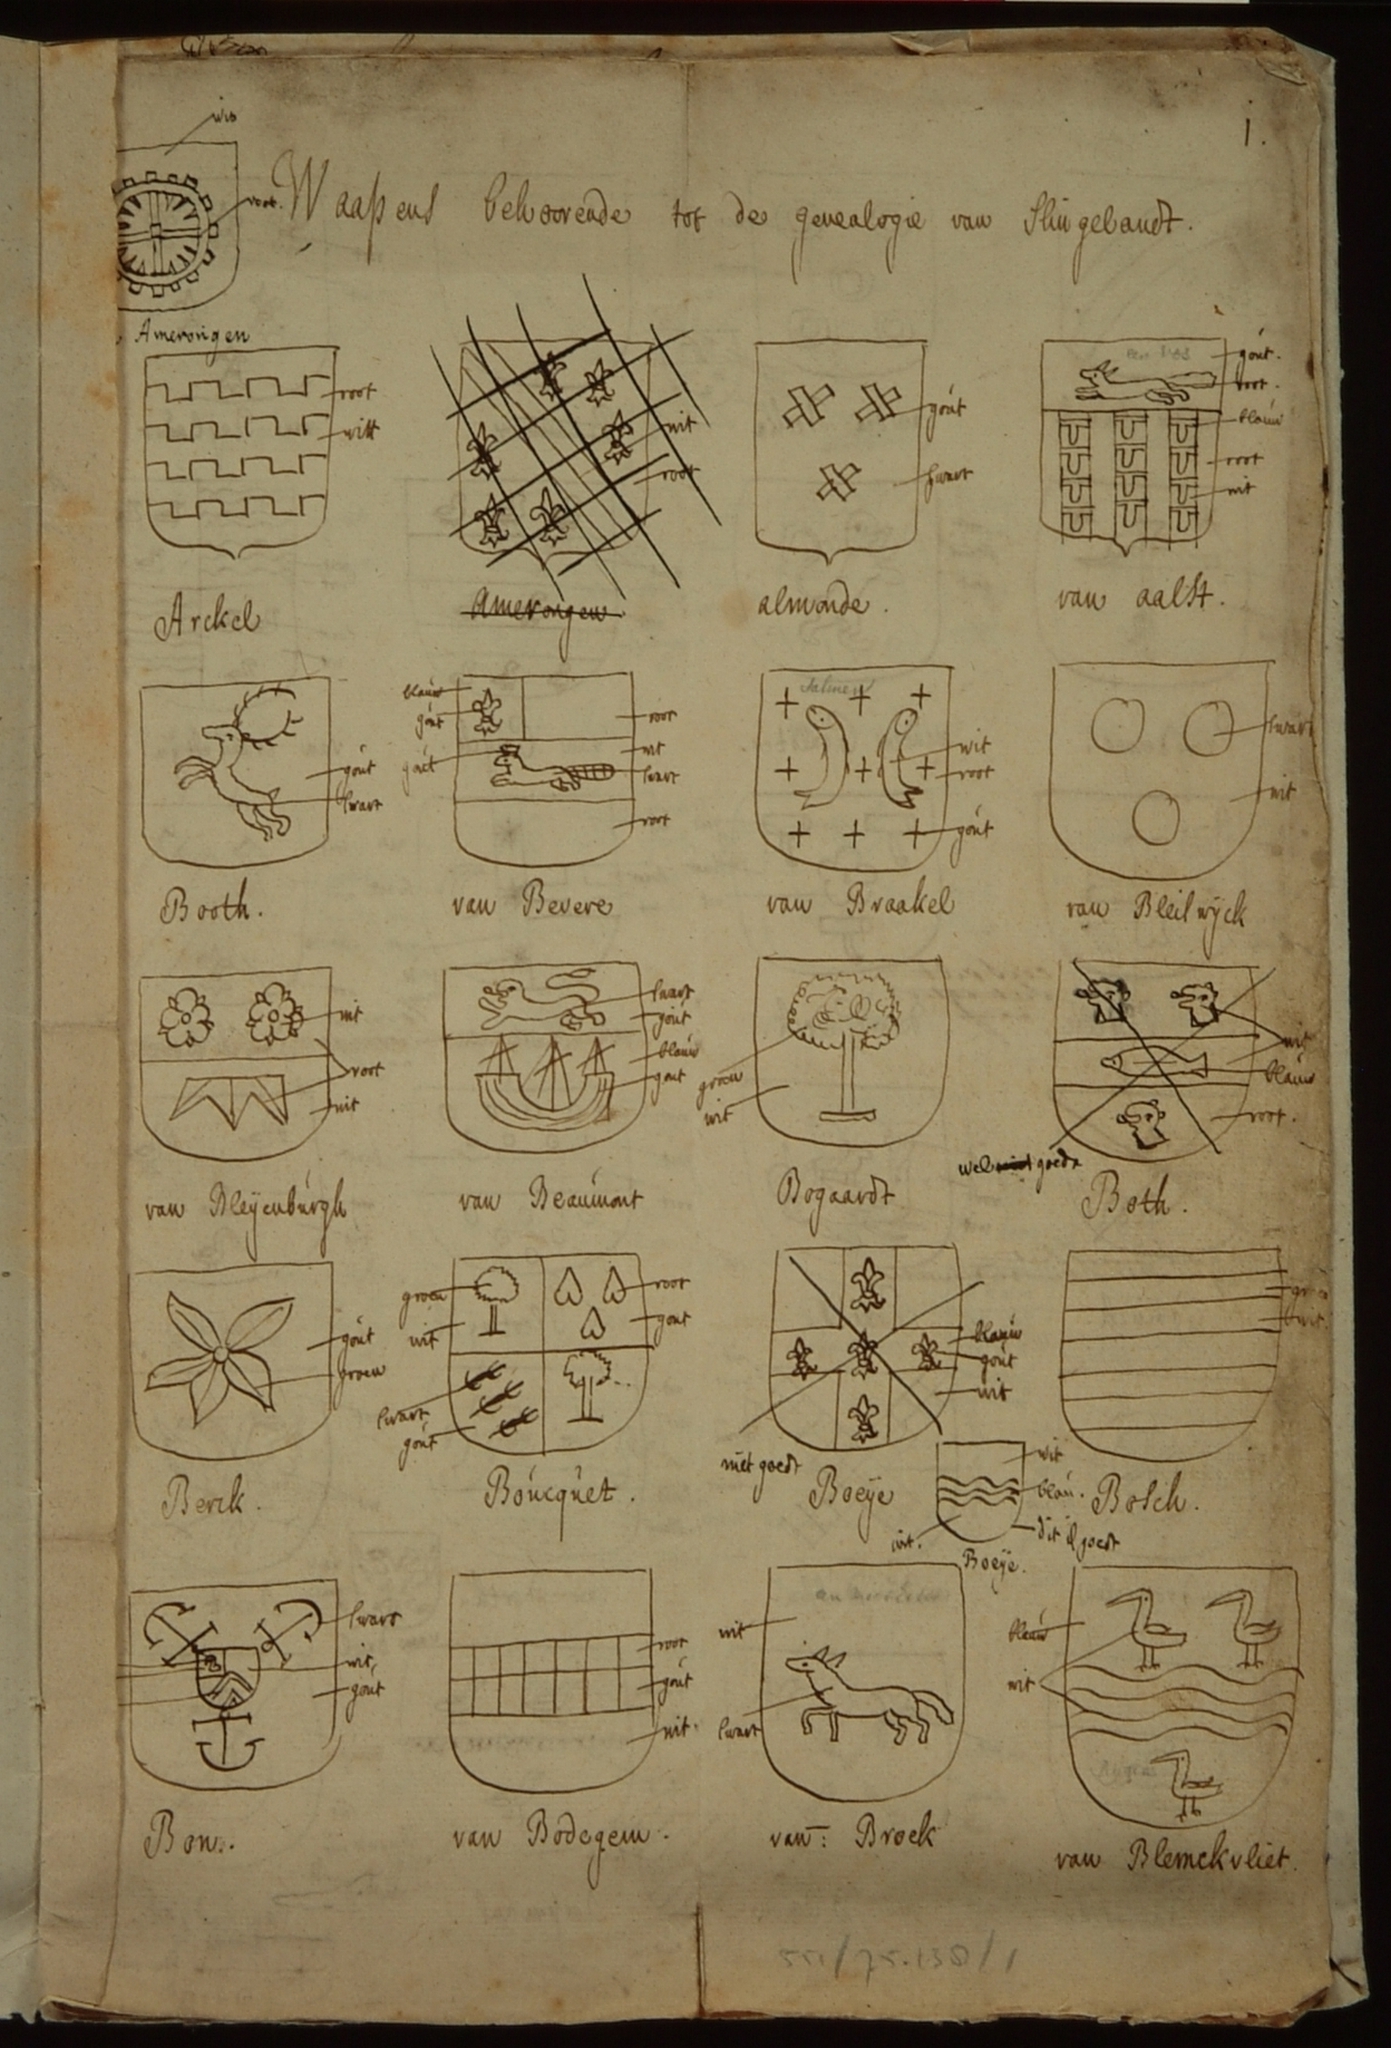 1.
wit
root.
Waapens behoorende tot de genealogie van Slingelandt.
Amerongen
root
witt
wit
root
gout
swart
gout.
root.
blauw
root
wit
Arckel
Amerongen
almonde.
van aalst.
gout
swart
blauw
gout
gout
root
wit
swart
root
Salmen
wit
root
gout
swart
wit
Booth.
van Bevere
van Braakel
van Bleiswyck
wit
root
wit
swart
gout
blauw
gout
groen
wit
wit
blauw
root.
wel niet goedt
van Bleyenburgh
van Beaumont
Bogaardt
Both.
gout
groen
groen
wit
root
gout
swart
gout
blauw
gout
wit
niet goedt
Berck.
Boucquet.
Boeye
Bosch.
wit
blau.
wit.
dit is goedt
Boeye.
swart
wit
gout
root
gout
wit.
wit
swart
blauw
wit
Bon.
van Bodegem.
van: Broek
van Blemckvliet.
551/75.138/1